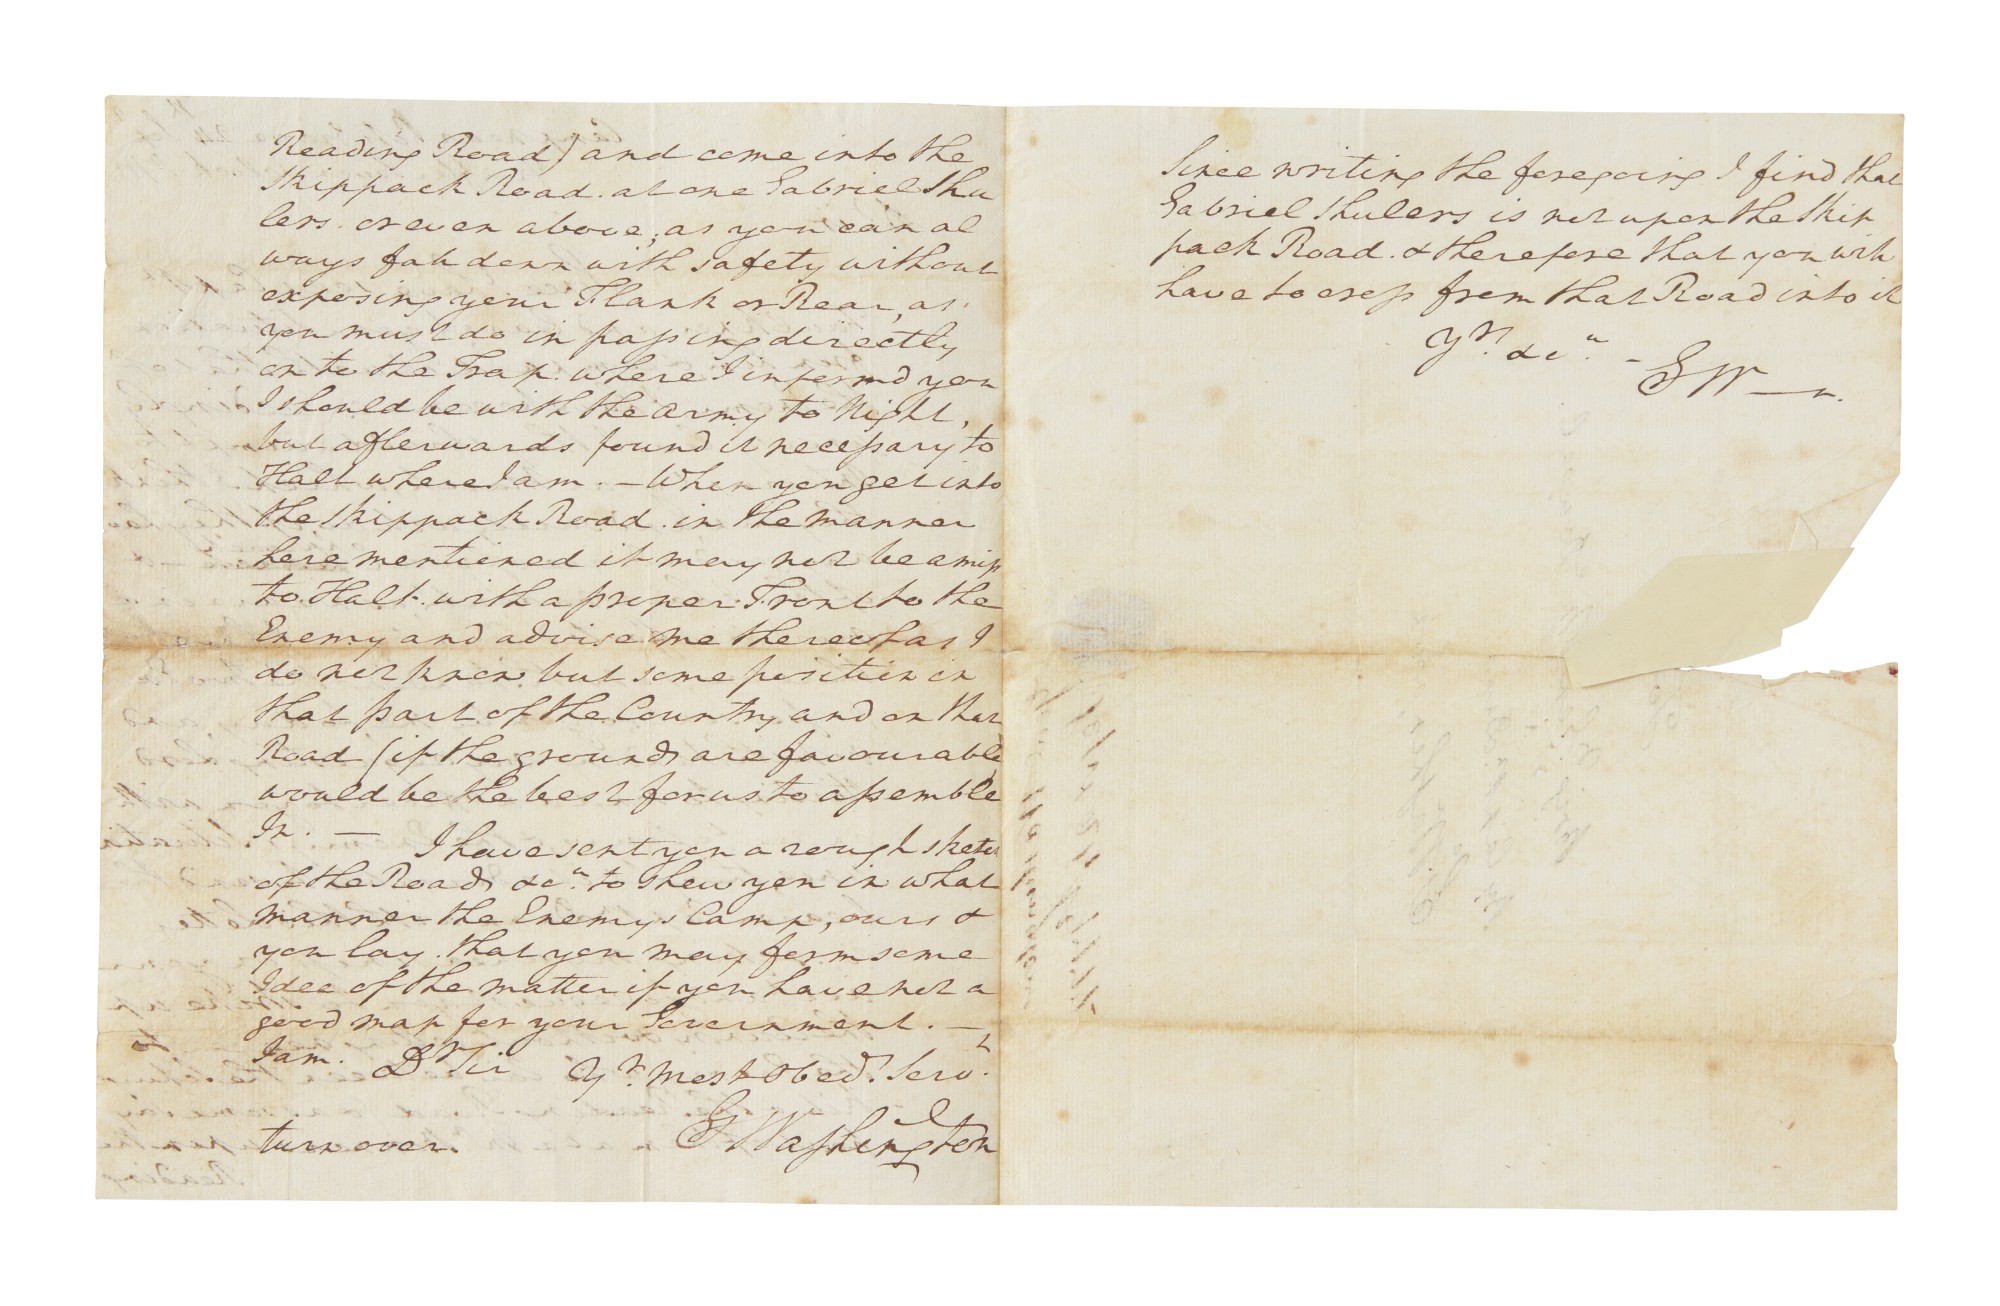 Reading Road) and come into the
Skippack Road. at one Gabriel Shu
lers. or even above; as you can al
ways fall down with safety without
exposing your Flank or Rear, as
you must do in passing directly
on to the Trap. where I informd you
I should be with the army to Night,
but afterwards found it necessary to
Halt where I am. — When you get into
the Skippack Road. in the manner
here mentioned it may not be amiss
to Halt. with a proper Front to the
Enemy and advise me thereof as I
do not know but some position in
that part of the Country and on that
Road (if the grounds are favourable)
would be the best for us to assemble
In. —
I have sent you a rough sketch
of the Roads &ca. to shew you in what
manner the Enemys Camp, ours &
you lay. that you may form some
Idea of the matter if you have not a
good map for your Government. —
I am. Dr Sir Yr. Most Obedt. Servt.
GWashington
turn over.
Since writing the foregoing I find that
Gabriel Shulers is not upon the Skip
pack Road. & therefore that you will
have to cross from that Road into it
Yrs. &ca. —
GW—n.